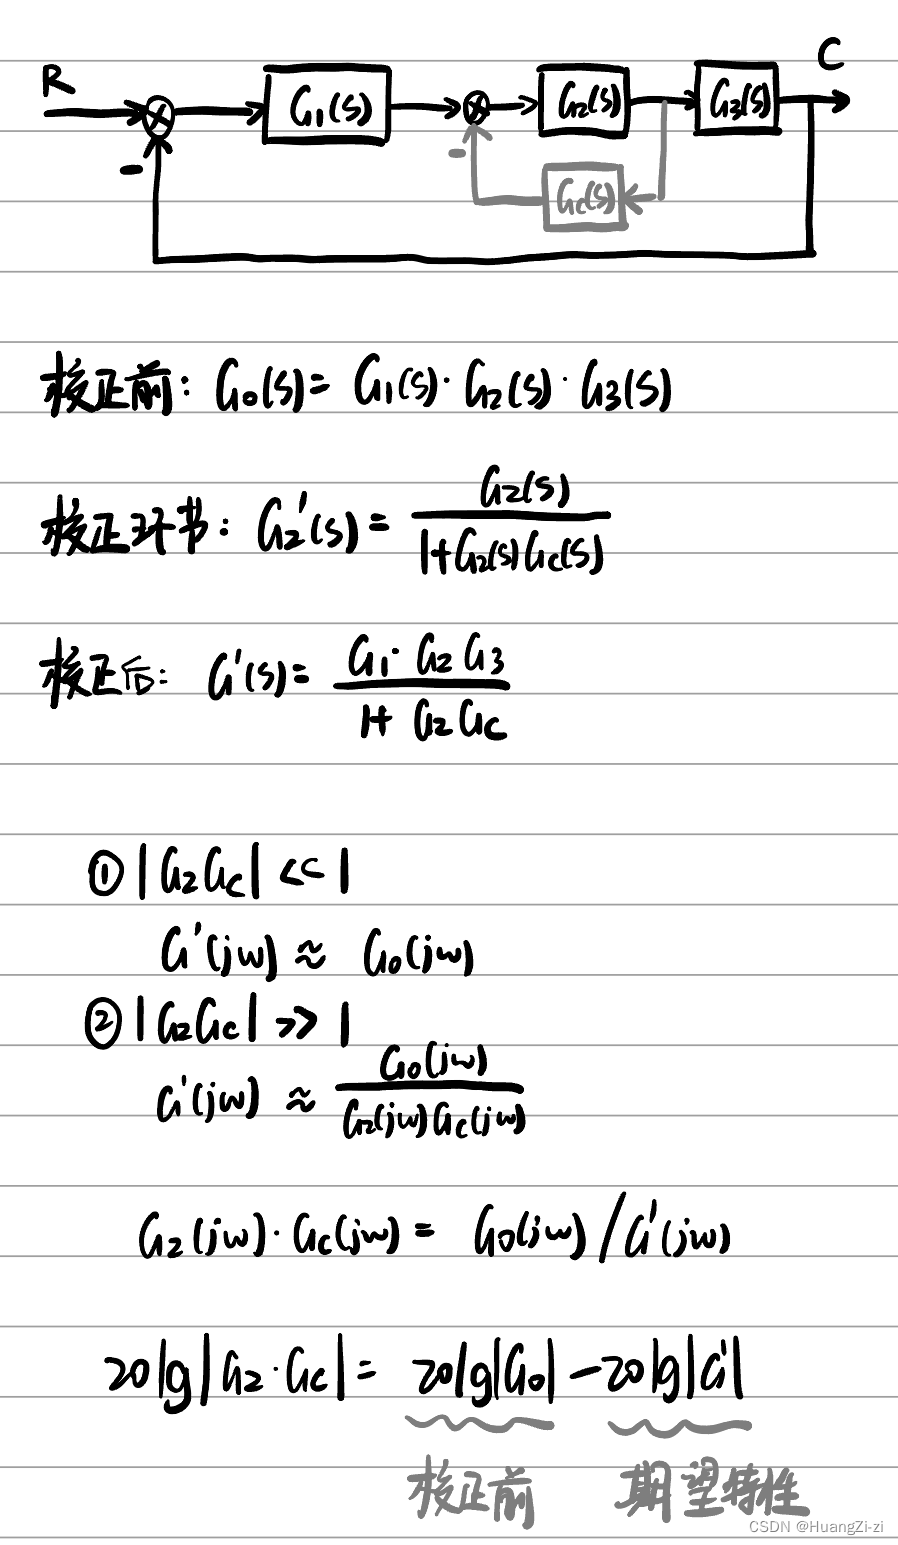 R
C
G₁(s)
G₂(s)
G₃(s)
−
−
Gc(s)
校正前: G₀(s) = G₁(s)·G₂(s)·G₃(s)
校正环节: G₂'(s) = G₂(s) / 1+G₂(s)Gc(s)
校正后: G'(s) = G₁·G₂G₃ / 1+G₂Gc
① |G₂Gc| << 1
G'(jw) ≈ G₀(jw)
② |G₂Gc| >> 1
G'(jw) ≈ G₀(jw) / G₂(jw)Gc(jw)
G₂(jw)·Gc(jw) = G₀(jw) / G'(jw)
20lg|G₂·Gc| = 20lg|G₀| − 20lg|G'|
校正前 期望特性
CSDN @HuangZi-zi